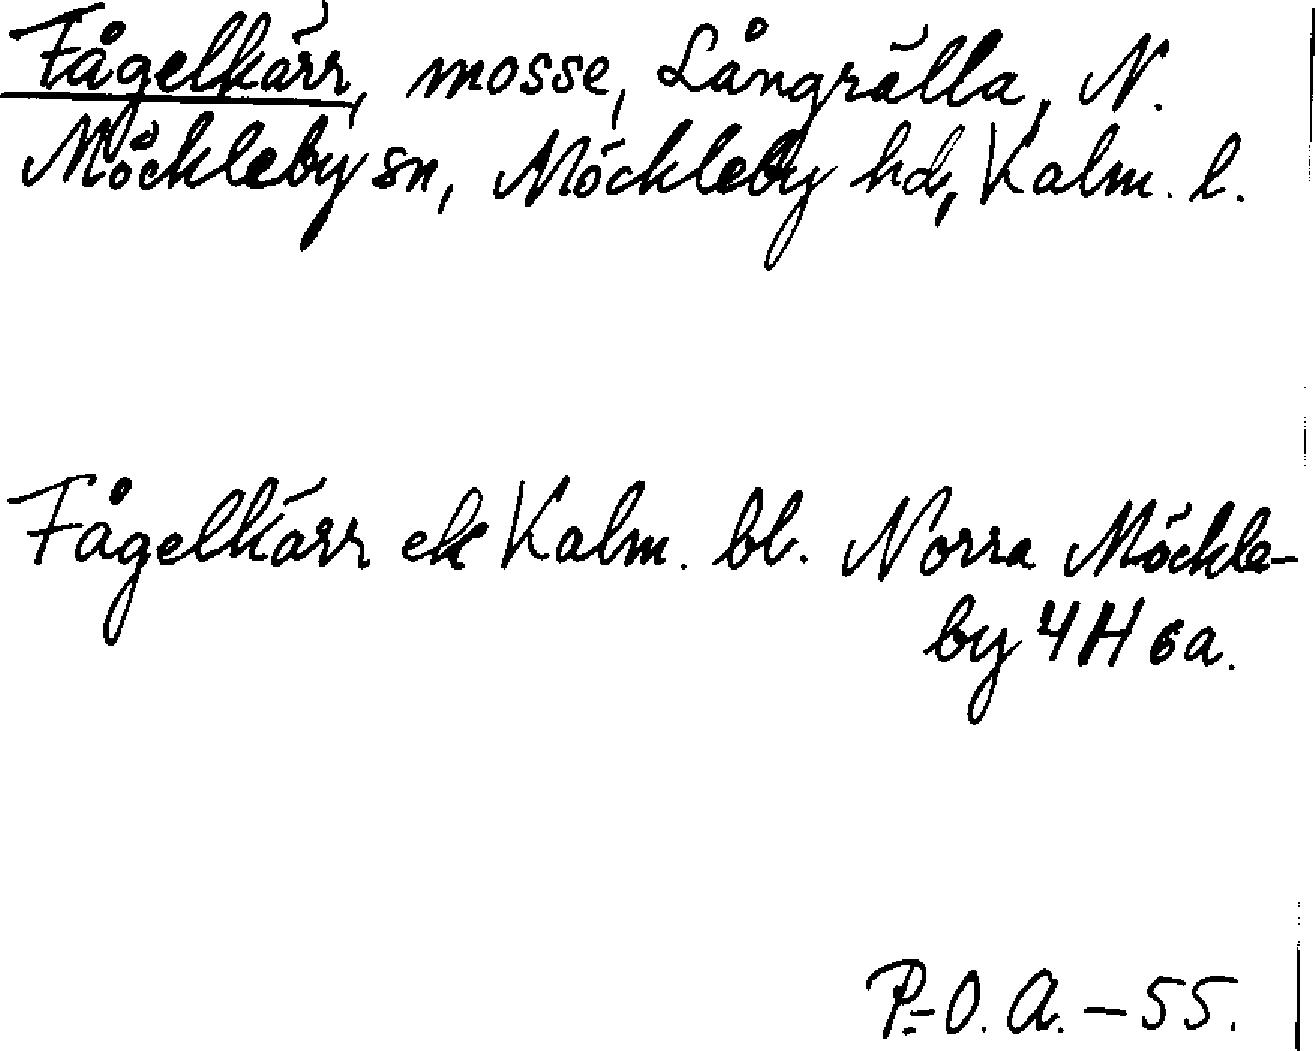 Fågelkärr, mosse, Långrälla, N.
Möckleby sn, Möckleby hd, Kalm. l.
Fågelkärr ek Kalm. bl. Norra Möckle-
by 4H 6a.
P.-O. A. – 55.